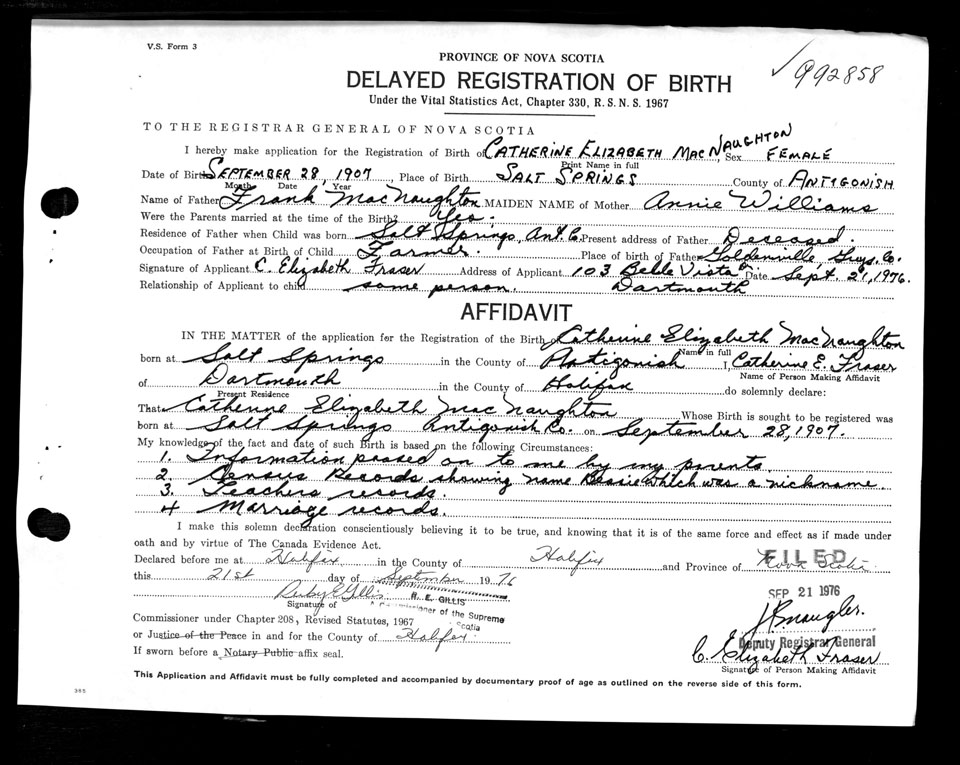 V.S. Form 3
PROVINCE OF NOVA SCOTIA
✓ 992858
DELAYED REGISTRATION OF BIRTH
Under the Vital Statistics Act, Chapter 330, R.S.N.S. 1967
TO THE REGISTRAR GENERAL OF NOVA SCOTIA
I hereby make application for the Registration of Birth of CATHERINE ELIZABETH MACNAUGHTON, Sex FEMALE
Print Name in full
Date of Birth SEPTEMBER 28, 1907, Place of Birth SALT SPRINGS County of ANTIGONISH
Month Date Year
Name of Father Frank MacNaughton MAIDEN NAME of Mother Annie Williams
Were the Parents married at the time of the Birth? Yes.
Residence of Father when Child was born Salt Springs, Ant. Co. Present address of Father Deceased.
Occupation of Father at Birth of Child Farmer Place of birth of Father Goldenville, Guys. Co.
Signature of Applicant C. Elizabeth Fraser Address of Applicant 103 Belle Vista Dr Date Sept. 21, 1976.
Relationship of Applicant to child same person. Dartmouth
AFFIDAVIT
IN THE MATTER of the application for the Registration of the Birth of Catherine Elizabeth MacNaughton
Name in full
born at Salt Springs in the County of Antigonish I, Catherine E. Fraser
Name of Person Making Affidavit
of Dartmouth in the County of Halifax do solemnly declare:
Present Residence
That Catherine Elizabeth MacNaughton Whose Birth is sought to be registered was
born at Salt Springs Antigonish Co. on September 28, 1907.
My knowledge of the fact and date of such Birth is based on the following Circumstances:
1. Information passed on to me by my parents.
2. Census Records showing name Bessie which was a nickname.
3. Teachers records.
4 Marriage records.
I make this solemn declaration conscientiously believing it to be true, and knowing that it is of the same force and effect as if made under
oath and by virtue of The Canada Evidence Act.
Declared before me at Halifax in the County of Halifax and Province of Nova Scotia
FILED
this 21st day of September 1976
SEP 21 1976
Ruby E Gillis R. E. GILLIS
Signature of A Commissioner of the Supreme
Commissioner under Chapter 208, Revised Statutes, 1967 Scotia
or Justice of the Peace in and for the County of Halifax
Deputy Registrar General
If sworn before a Notary Public affix seal.
C. Elizabeth Fraser
Signature of Person Making Affidavit
This Application and Affidavit must be fully completed and accompanied by documentary proof of age as outlined on the reverse side of this form.